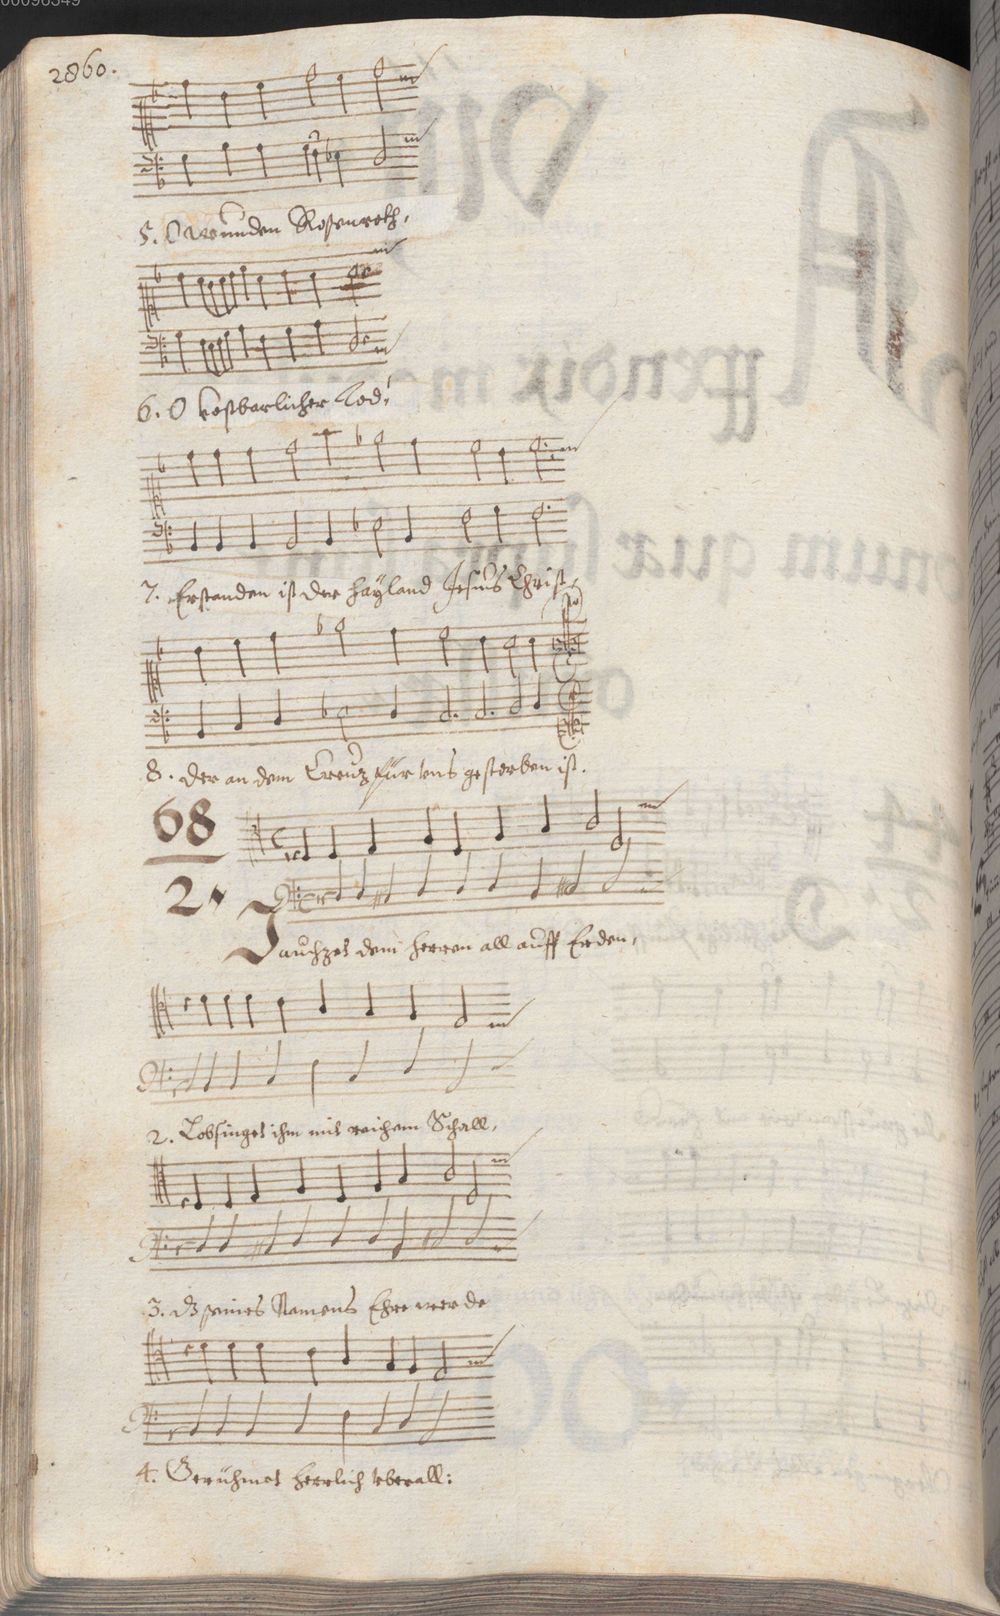 00096349
2860.
5. O Wunden Rosenroth,
6. O kostbarlicher Tod,
7. Erstanden ist der Hayland Jesus Christ,
8. Der an dem Creutz für uns gestorben ist.
68
2.
Jauchzet dem Herren all auff Erden,
2. Lobsinget ihm mit reichem Schall,
3. Dz seines Namens Ehre werde
4. Gerühmet herrlich uberall: